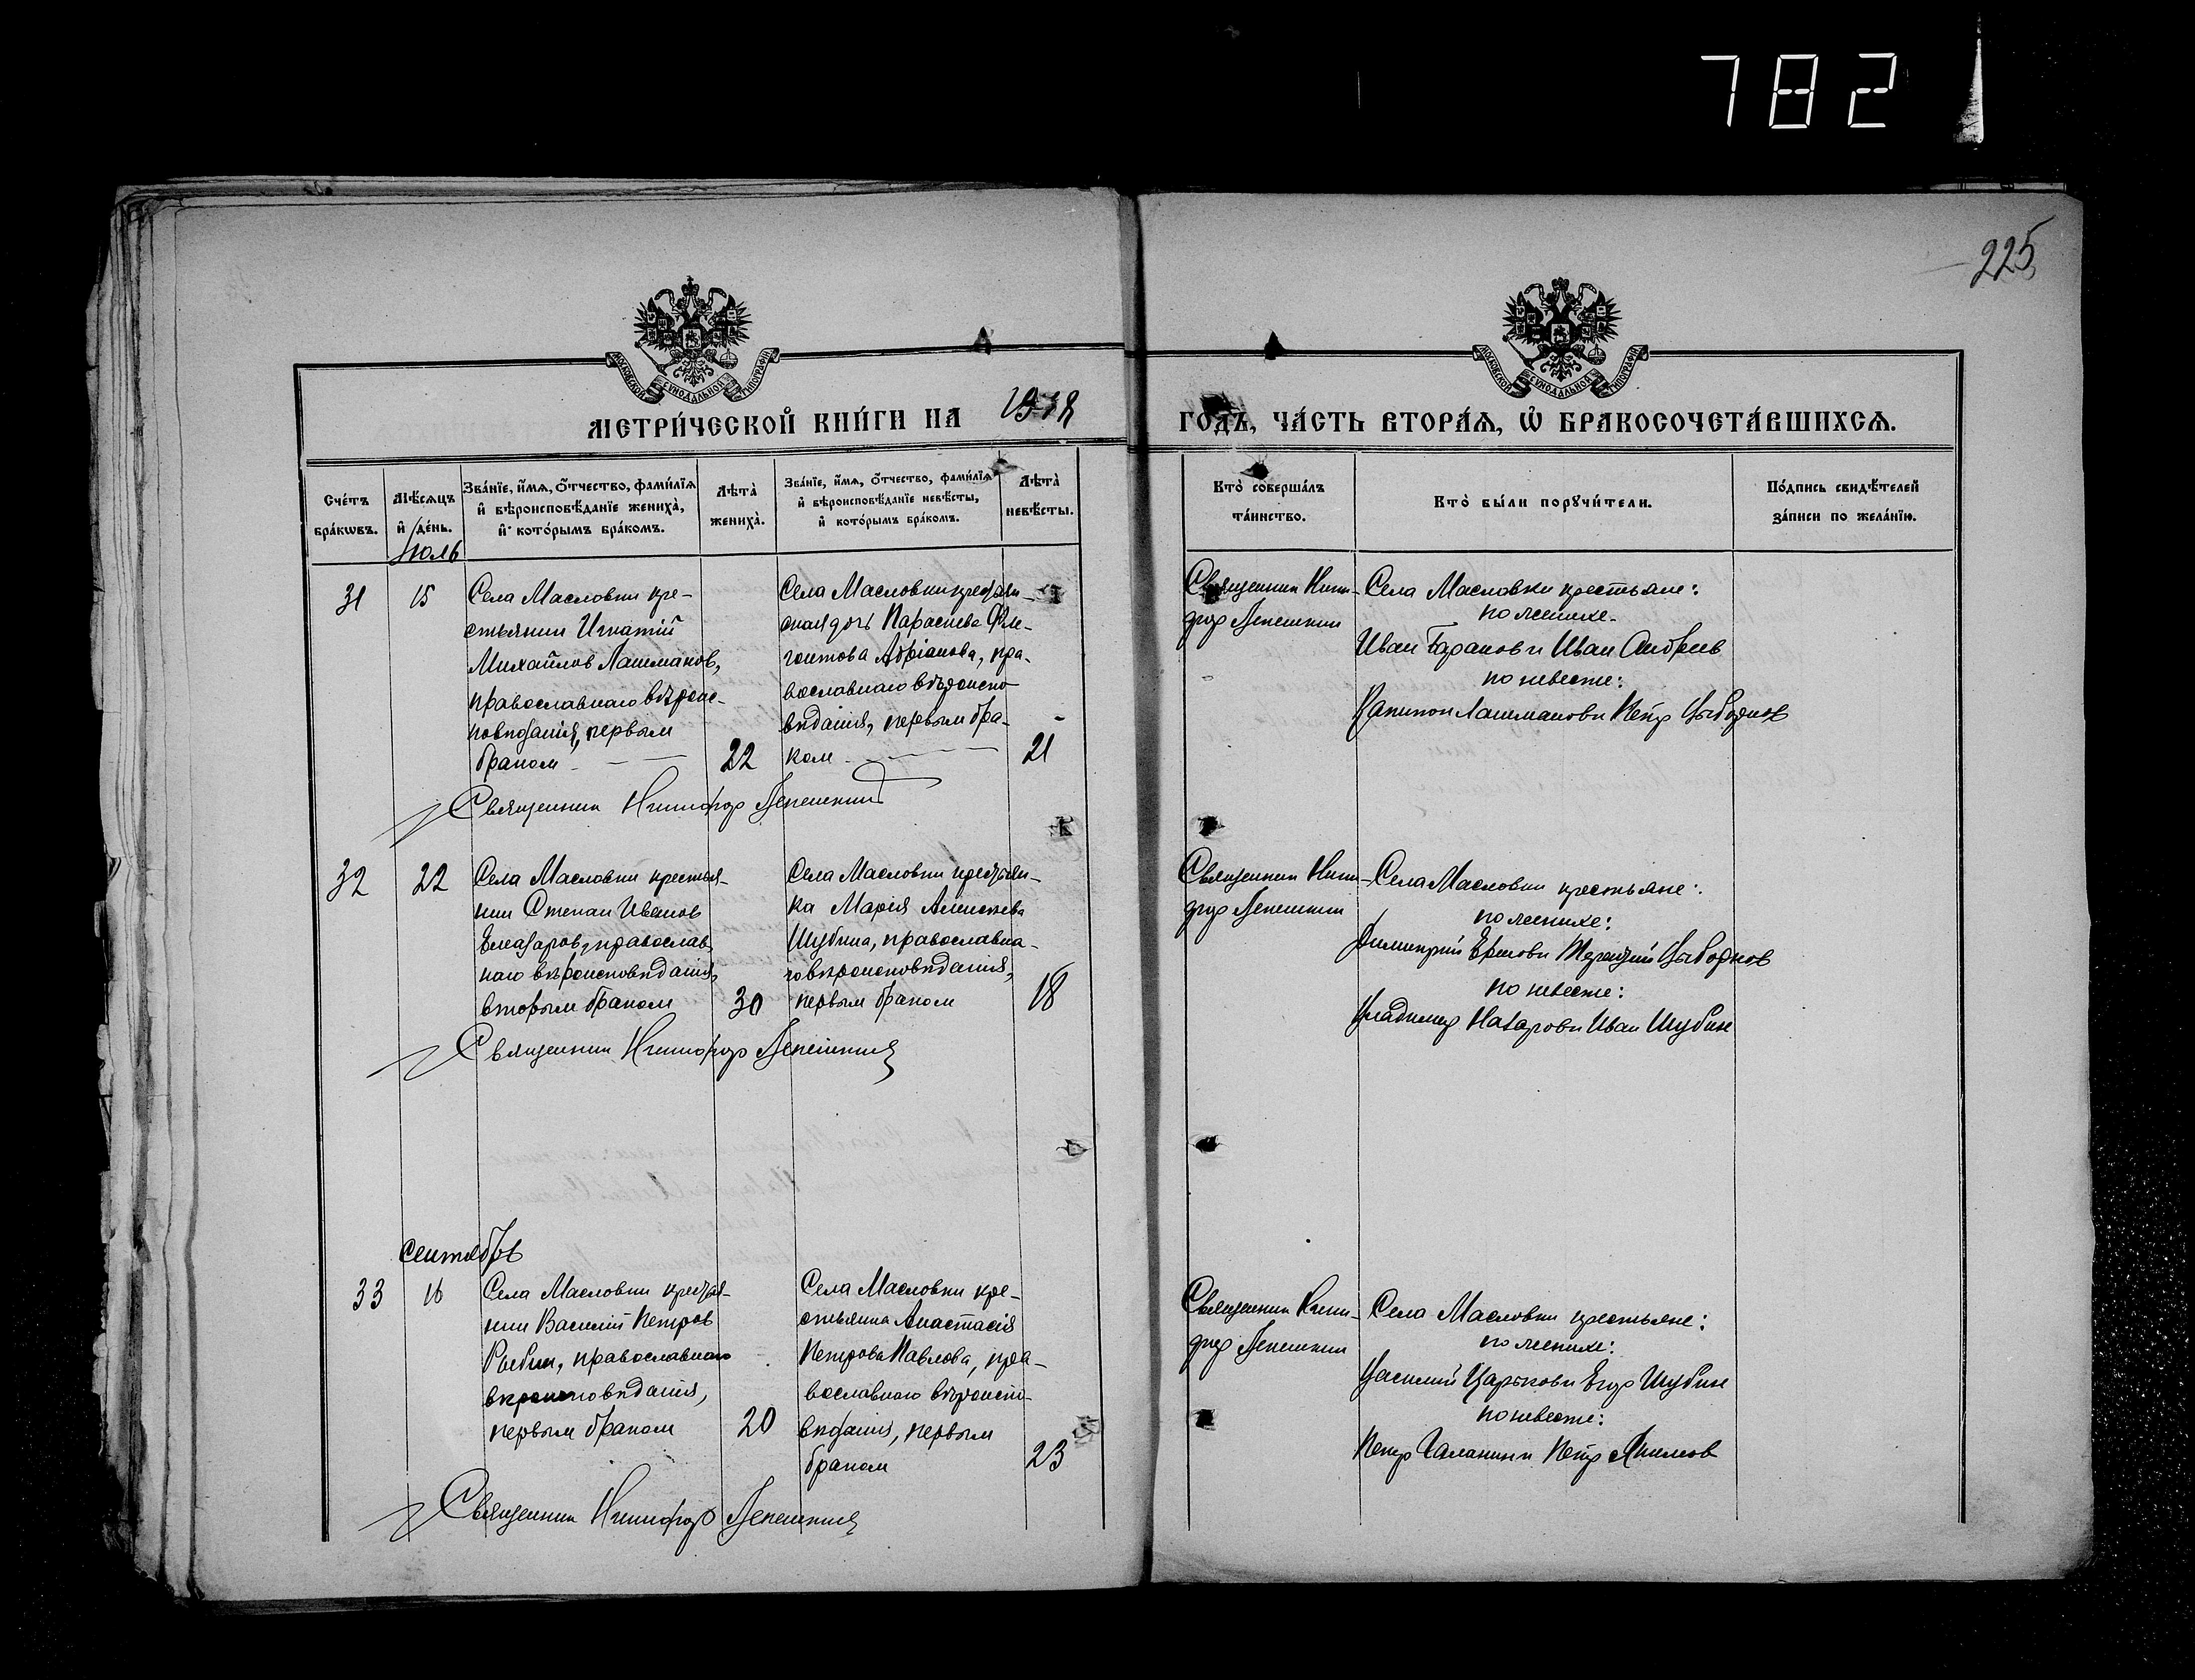 782
225
МОСКОВСКОЙ СѴНОДАЛЬНОЙ ТИПОГРАФІИ
МОСКОВСКОЙ СѴНОДАЛЬНОЙ ТИПОГРАФІИ
МЕТРИ́ЧЕСКОЙ КНИ́ГИ НА
ГО́ДЪ, ЧА́СТЬ ВТОРА́Ѧ, Ѡ҆ БРАКОСОЧЕТА́ВШИХСѦ.
Сче́тъ бра́кѡвъ.
Мѣ́сѧцъ и҆ де́нь.
Зва́нїе, и҆́мѧ, ѻ҆́тчество, фами́лїѧ и҆ вѣроисповѣ́данїе жениха̀, и҆ кото́рымъ бра́комъ.
Лѣта̀ жениха̀.
Зва́нїе, и҆́мѧ, ѻ҆́тчество, фами́лїѧ и҆ вѣроисповѣ́данїе невѣ́сты, и҆ кото́рымъ бра́комъ.
Лѣта̀ невѣ́сты.
Кто̀ соверша́лъ та́инство.
Кто̀ бы́ли порꙋчи́тели.
По́дпись свидѣ́телей за́писи по жела́нїю.
Іюль
31
15
Села Масловки кре-
стьянин Игнатій
Михайлов Лашманов,
православнаго вѣроис-
повѣданія, первым
браком
22
Села Масловки крестьян-
ская дочь Параскева
православнаго вѣроиспо-
вѣданія, первым бра-
ком
21
Священник Ники-
фор Лепешкин
Села Масловки крестьяне:
по женихе
Иван Баранов и Иван Андреев
по невесте:
Капитон Лашманов и Петр
Священник Никифор Лепешкин
32
22
Села Масловки крестья-
нин Степан Иванов
Елеазаров, православ-
наго вѣроисповѣданія,
вторым браком
30
Села Масловки крестьян-
ка Марія Алексеева
Шубина, православна-
го вѣроисповѣданія,
первым браком
18
Священник Ники-
фор Лепешкин
Села Масловки крестьяне:
по женихе:
Димитрий Ершов и
по невесте:
Владимир Назаров и Иван Шубин
Священник Никифор Лепешкин
Сентябрь
33
16
Села Масловки крестья-
нин Василий Петров
Рыбин, православнаго
вѣроисповѣданія,
первым браком
20
Села Масловки кре-
стьянка Анастасія
Петрова Павлова, пра-
вославнаго вѣроиспо-
вѣданія, первым
браком
23
Священник Ники-
фор Лепешкин
Села Масловки крестьяне:
по женихе:
Василий Царьков и Егор Шубин
по невесте:
Петр Галанин и Петр Якимов
Священник Никифор Лепешкин